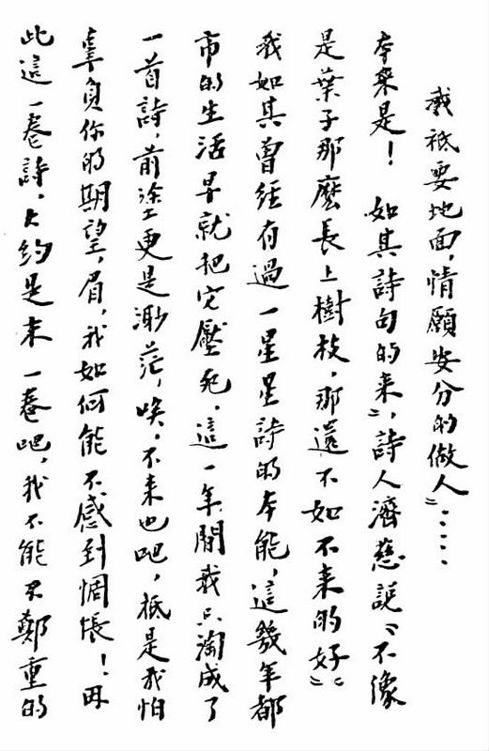 我祇要地面,情願安分的做人”……
本來是! 如其詩句的來”,詩人濟慈說,“不像
是葉子那麼長上樹枝,那還不如不來的好”
我如其曾經有過一星星詩的本能,這幾年都
市的生活早就把它壓死,這一年間我只淘成了
一首詩,前途更是渺茫,唉,不來也吧,祇是我怕
辜負你的期望,眉,我如何能不感到惆悵!因
此這一卷詩,大約是末一卷吧,我不能不鄭重的